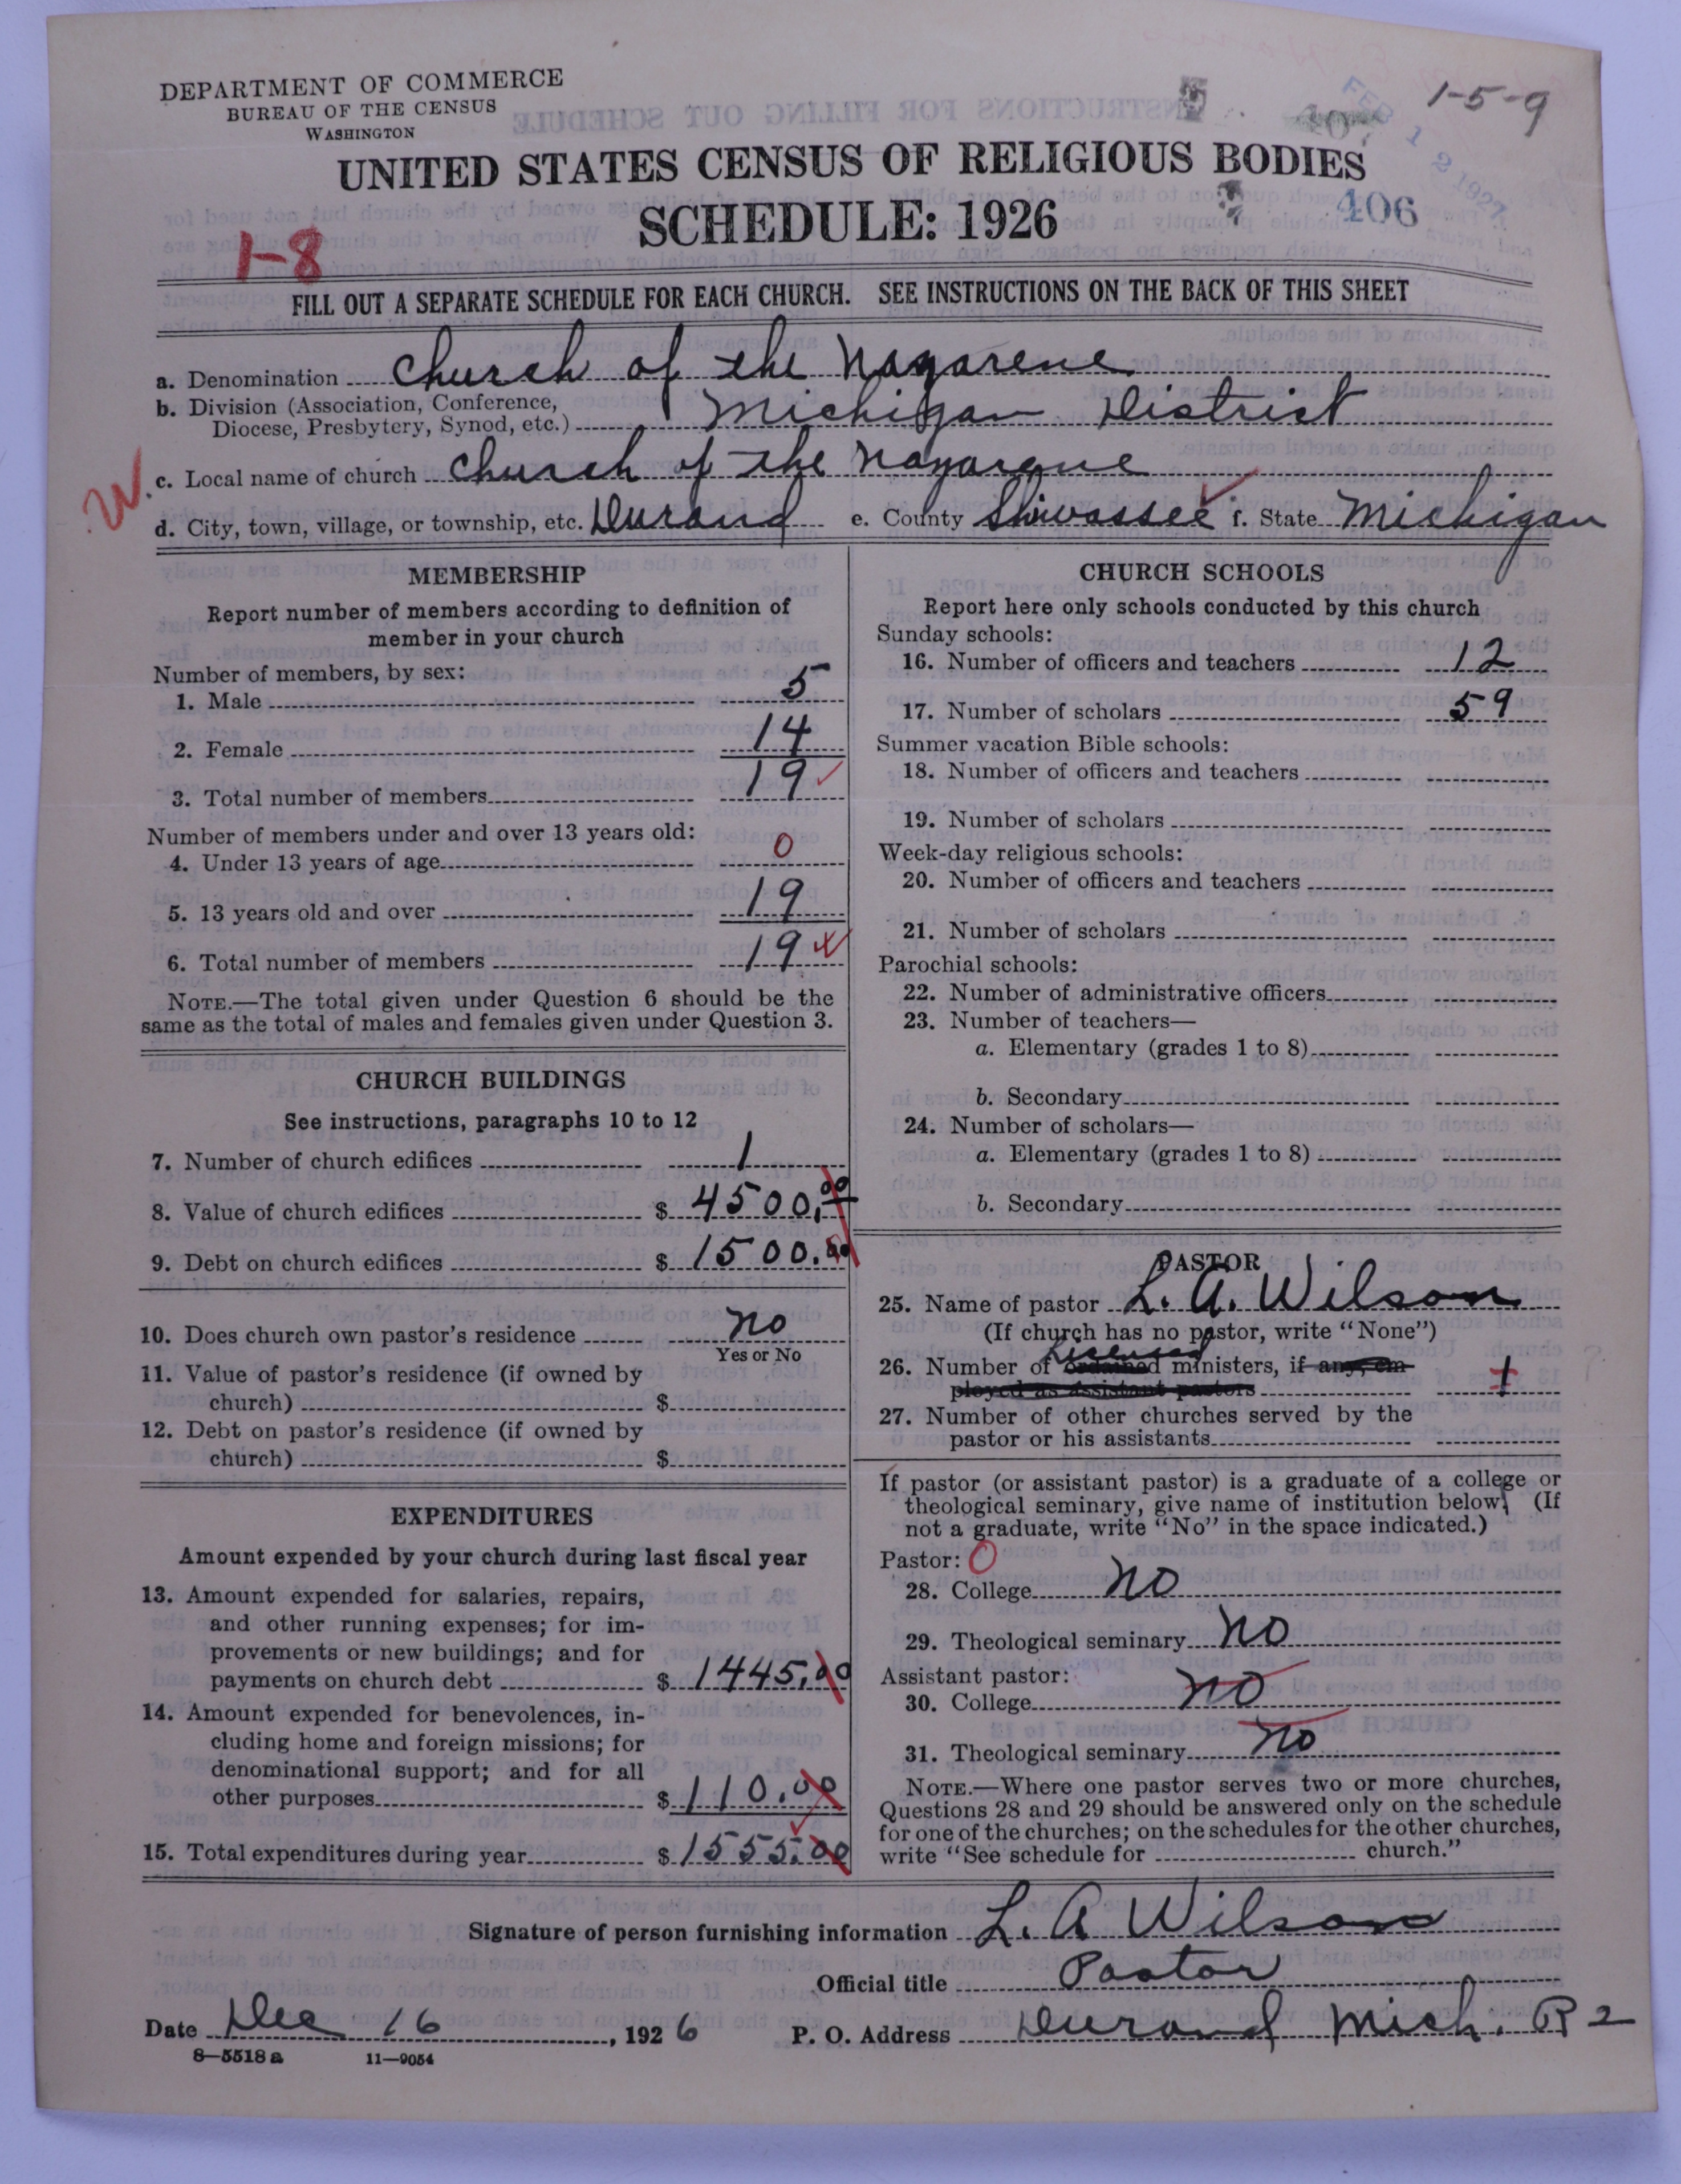 DEPARTMENT OF COMMERCE
BUREAU OF THE CENSUS
WASHINGTON
1-5-9
FEB 12 1927
UNITED STATES CENSUS OF RELIGIOUS BODIES
SCHEDULE: 1926
406
1-8
FILL OUT A SEPARATE SCHEDULE FOR EACH CHURCH. SEE INSTRUCTIONS ON THE BACK OF THIS SHEET
a. Denomination Church of the Nazarene
b. Division (Association, Conference, Diocese, Presbytery, Synod, etc.) Michigan District
W. c. Local name of church Church of the Nazarene
d. City, town, village, or township, etc. Durand e. County Shiwassee f. State Michigan
MEMBERSHIP
Report number of members according to definition of
member in your church
Number of members, by sex:
1. Male 5
2. Female 14
3. Total number of members 19
Number of members under and over 13 years old:
4. Under 13 years of age 0
5. 13 years old and over 19
6. Total number of members 19
NOTE.—The total given under Question 6 should be the
same as the total of males and females given under Question 3.
CHURCH BUILDINGS
See instructions, paragraphs 10 to 12
7. Number of church edifices 1
8. Value of church edifices $ 4500.00
9. Debt on church edifices $ 1500.00
10. Does church own pastor's residence no
Yes or No
11. Value of pastor's residence (if owned by
church) $
12. Debt on pastor's residence (if owned by
church) $
EXPENDITURES
Amount expended by your church during last fiscal year
13. Amount expended for salaries, repairs,
and other running expenses; for im-
provements or new buildings; and for
payments on church debt $ 1445.00
14. Amount expended for benevolences, in-
cluding home and foreign missions; for
denominational support; and for all
other purposes $ 110.00
15. Total expenditures during year $ 1555.00
CHURCH SCHOOLS
Report here only schools conducted by this church
Sunday schools:
16. Number of officers and teachers 12
17. Number of scholars 59
Summer vacation Bible schools:
18. Number of officers and teachers
19. Number of scholars
Week-day religious schools:
20. Number of officers and teachers
21. Number of scholars
Parochial schools:
22. Number of administrative officers
23. Number of teachers—
a. Elementary (grades 1 to 8)
b. Secondary
24. Number of scholars—
a. Elementary (grades 1 to 8)
b. Secondary
PASTOR
25. Name of pastor L. A. Wilson
(If church has no pastor, write "None")
Licensed
26. Number of ordained ministers, if any, em-
ployed as assistant pastors 1
27. Number of other churches served by the
pastor or his assistants
If pastor (or assistant pastor) is a graduate of a college or
theological seminary, give name of institution below. (If
not a graduate, write "No" in the space indicated.)
Pastor: 0
28. College no
29. Theological seminary no
Assistant pastor:
30. College no
31. Theological seminary no
NOTE.—Where one pastor serves two or more churches,
Questions 28 and 29 should be answered only on the schedule
for one of the churches; on the schedules for the other churches,
write "See schedule for church."
Signature of person furnishing information L. A Wilson
Official title Pastor
Date Dec 16, 1926 P. O. Address Durand Mich. R 2
8—5518 a 11—9054